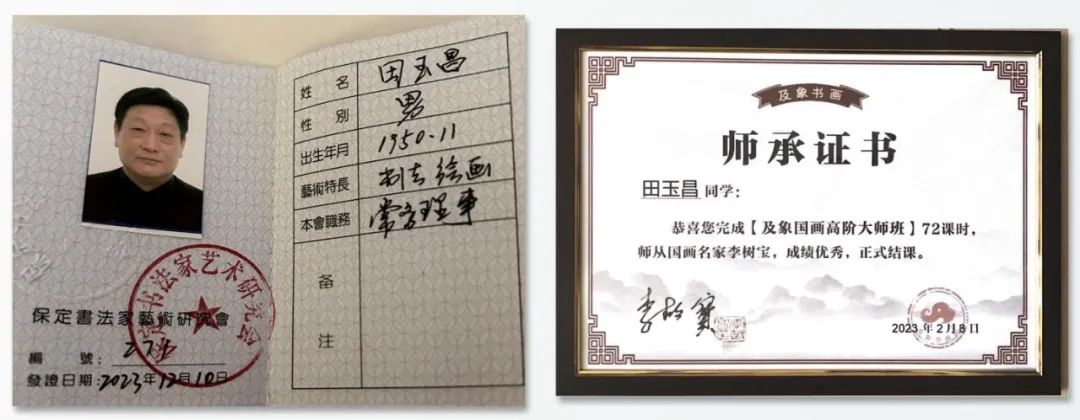 姓名 田玉昌
性别 男
出生年月 1950.11
藝術特長 书法 绘画
本會職務 常务理事
备注
保定書法家藝術研究會
保定书法家艺术研究会
編號:
發證日期:2023年12月10日
及象书画
师承证书
田玉昌同学:
恭喜您完成【及象国画高阶大师班】72课时,
师从国画名家李树宝,成绩优秀,正式结课。
李树宝
2023年2月8日